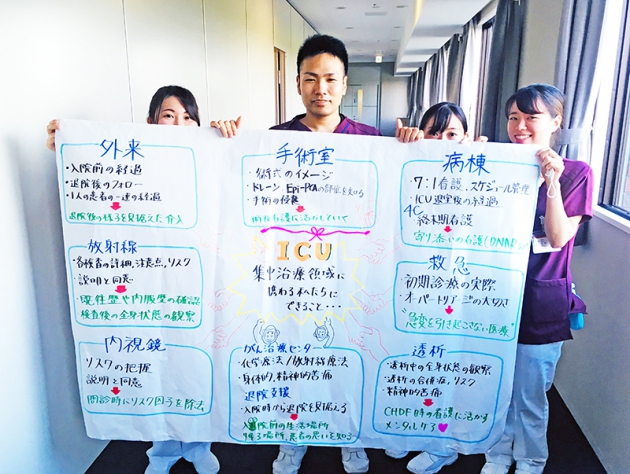 外来
・入院前の経過
・退院後のフォロー
・1人の患者の一連の経過
退院後の様子を見据えた介入
放射線
・各検査の詳細、注意点、リスク
・説明と同意
既往歴や内服歴の確認
検査後の全身状態の観察
内視鏡
・リスクの把握
・説明と同意
問診時にリスク因子を除去
手術室
・術式のイメージ
・ドレーン Epi-PCAの部位を知る
・手術の侵襲
周術看護に活かしていく
ICU
集中治療領域に
携わる私たちに
できること・・・
がん治療センター
・化学療法/放射線療法
・身体的、精神的苦痛
退院支援
・入院時から退院を見据える
入院前の生活場所
帰る場所、患者の思いを知る
病棟
・7:1看護、スケジュール管理
・ICU退室後の経過
4C
・終末期看護
寄り添いの看護(DNAR)
救急
・初期診療の実際
・オーバートリアージの大切さ
"急変を引き起こさない医療"
透析
・透析中の全身状態の観察
・透析の合併症、リスク
・精神的苦痛
CHDF時の看護に活かす
メンタルケア